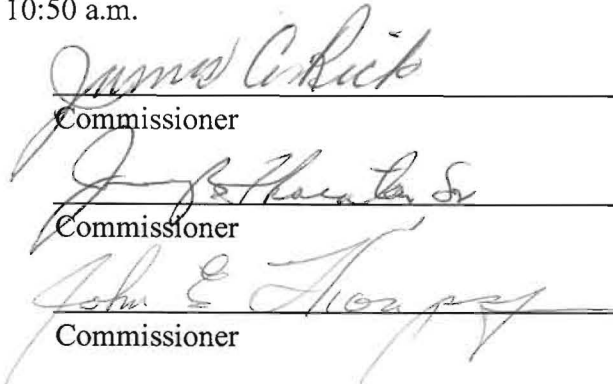 10:50 a.m.
James A. Rick
Commissioner
Sr
Commissioner
John E Thompson
Commissioner